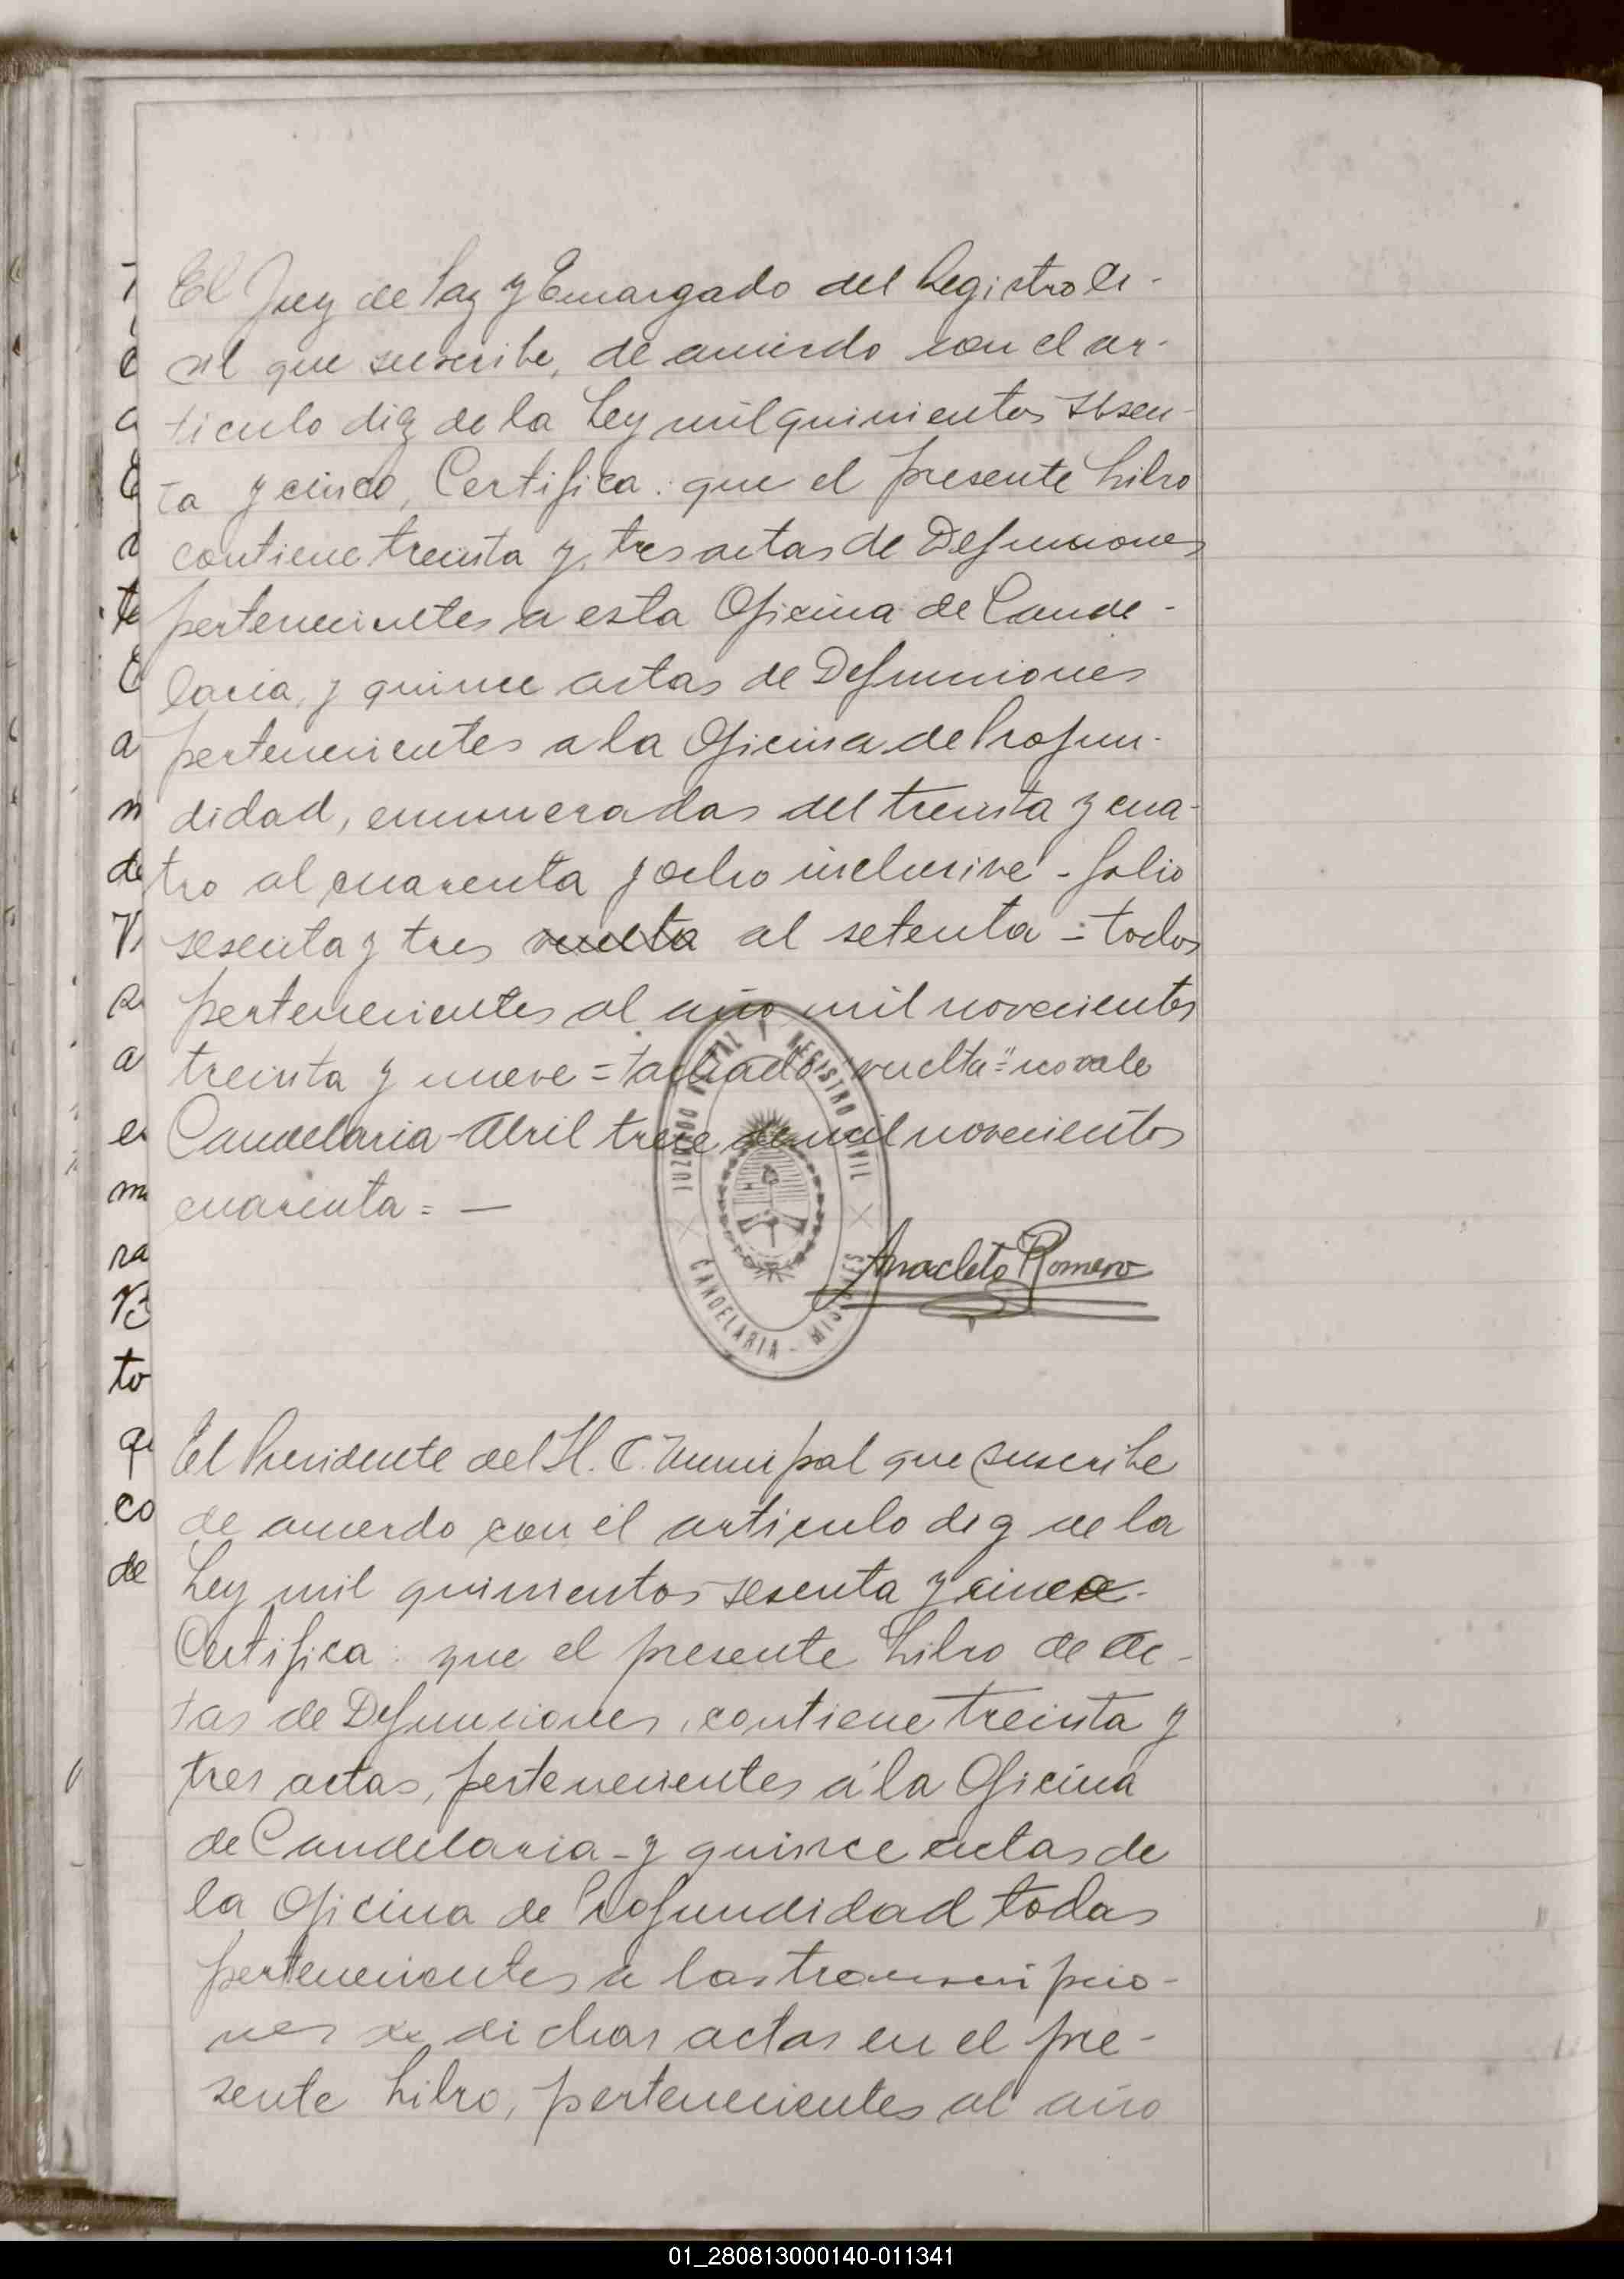 El Juez de Paz y Encargado del Registro Ci-
vil que suscribe, de acuerdo con el ar-
ticulo diez de la Ley mil quinientos sesen-
ta y cinco, Certifica: que el presente Libro
contiene treinta y tres actas de Defunciones
pertenecientes a esta Oficina de Cande-
laria, y quince actas de Defunciones
pertenecientes a la Oficina de Profun-
didad, enumeradas del treinta y cua-
tro al cuarenta y ocho inclusive - folio
sesenta y tres vuelta al setenta = todos
pertenecientes al año mil novecientos
treinta y nueve = tachado "vuelta" = no vale
Candelaria - Abril trece de mil novecientos
cuarenta = —
JUZGADO DE PAZ Y REGISTRO CIVIL
CANDELARIA - MISIONES
Anacleto Romero
El Presidente del H. C. Municipal que suscribe
de acuerdo con el articulo diez de la
Ley mil quinientos sesenta y cinco -
Certifica: que el presente Libro de Ac-
tas de Defunciones, contiene treinta y
tres actas, pertenecientes á la Oficina
de Candelaria - y quince actas de
la Oficina de Profundidad todas
pertenecientes a las transcripcio-
nes de dichas actas en el pre-
sente Libro, pertenecientes al año
01_280813000140-011341